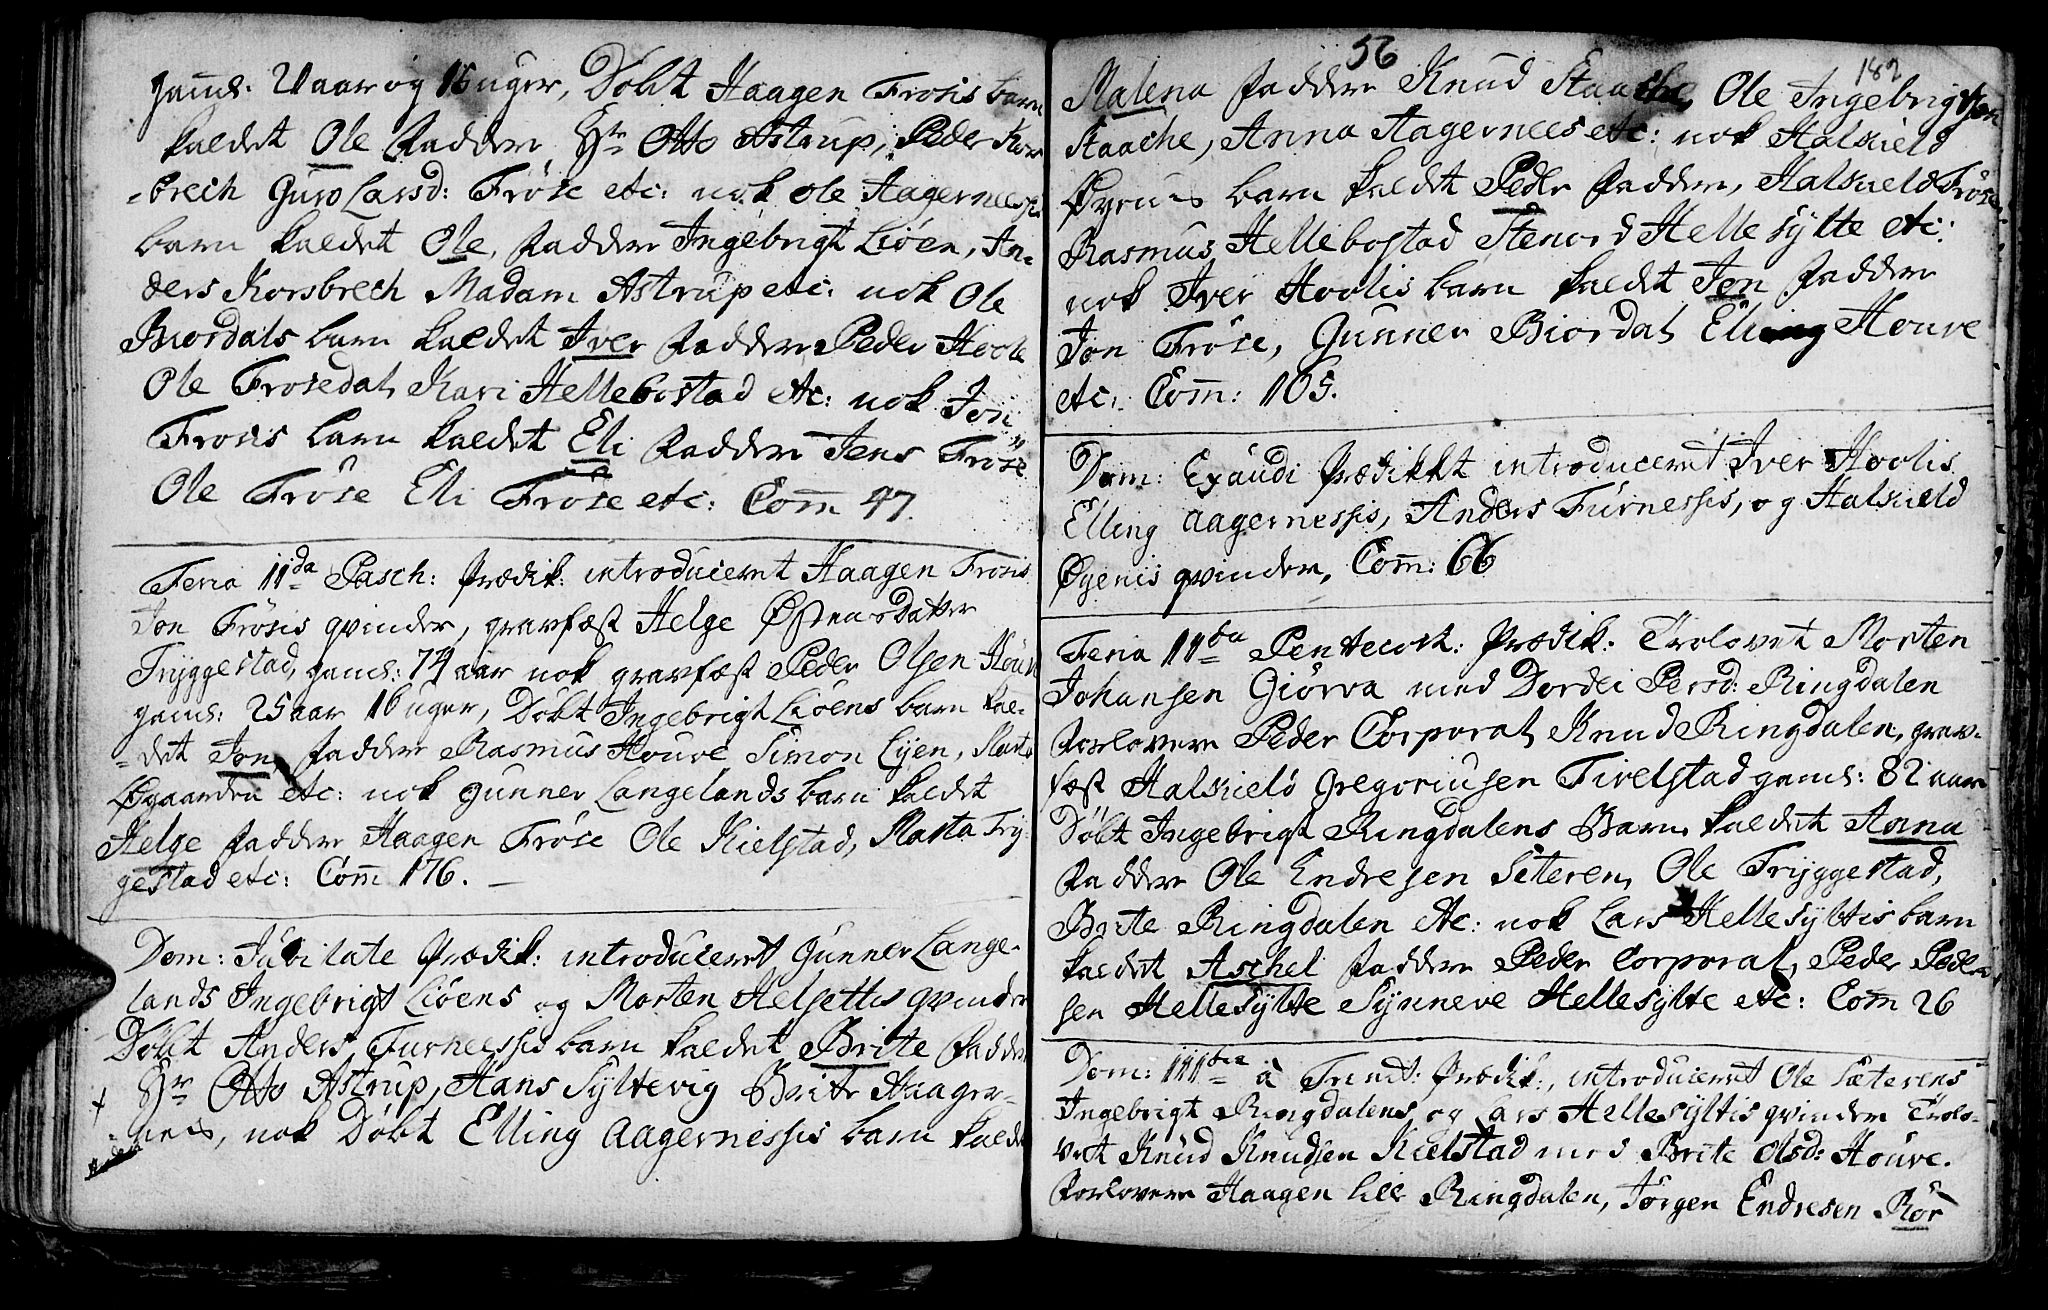 gaml: 2 aar og 16 uger, Döbt Haagen Frøsis barn
kaldet Ole Faddere Hr Otto Astrup, Peder Kors-
-brech Guro Larsd: Fröse etc: nok Ole Aagerneesis
barn kaldet Ole, Faddere Ingebrigt Liöen, An-
ders Korsbrech Madam Astrup etc: nok Ole
Biordals barn kaldet Iver Faddere Peder Hoole
Ole Frosedal, Kari Hellebostad etc: nok Jon
Frosis barn kaldet Eli Faddere Jens Fröse
Ole Fröse Eli Fröse etc: Com̄ 47.
Feria IIda Pasch: Prædik: introduceret Haagen Frosis
Jon Frösis qvinder, gravfæst Helge Østensdatter
Tryggestad, gaml: 74 aar nok gravfæst Peder Olsen Houve
gaml: 25 aar 16 uger, Döbt Ingebrigt Liöens barn kal-
-det Jon, Faddere Rasmus Houve Simon Lyen, Marte
Øgaarden etc: nok Gunner Langelands barn kaldet
Helge Faddere Haagen Fröse Ole Kielstad, Marta Try-
gestad etc: Com̄ 176.
Dom: Jubilate Prædik: introduceret Gunner Lange-
lands Ingebrigt Liöens og Morten Helsettis qvinder
Döbt Anders Furneessis barn kaldet Brite Fadder
Hr Otto Astrup, Hans Syltevig Brite Aager-
-neis, nok Döbt Elling Aagernessis barn kaldet
56
182
Malena Faddere Knud Staache, Ole Ingebrigtsen
Staache, Anna Aagernees etc: nok Halkield
Øyenis barn kaldet Peder Faddere, Halkield Fröse
Rasmus Hellebostad Stenord Hellesylte etc:
nok Iver Hoolis barn kaldet Jon Faddere
Jon Fröse, Gunner Biordal Elling Houve
etc: Com̄: 105.
Dom: Exaudi Prædikkt introduceret Iver Hoolis
Elling Aagernessis, Anders Furnessis, og Halkield
Øyenis qvinder, Com̄: 66
Feria IIda Pentecost: Prædik: Trolovet Morten
Johansen Giörva med Dordei Persd: Ringdalen
Forlovere Peder Corporal, Knud Ringdalen, grav-
fæst Halkield Gregoriusen Tivelstad gaml: 82 aar
Döbt Ingebrigt Ringdalens Barn kaldet Anna
Faddere Ole Endresen Seteren, Ole Tryggestad,
Brite Ringdalen etc: nok Lars Hellesyltis barn
kaldet Aschel Faddere Peder Corporal, Peder Peder-
sen Hellesylte Synneve Hellesylte etc: Com̄ 26
Dom: III tia a Trinit: Prædik:, introduceret Ole Sæterens
Ingebrigt Ringdalens, og Lars Hellesyltis qvinder Trolo-
vet Knud Knudsen Kielstad med Brite Olsd: Houve.
Forlovere Haagen lille Ringdalen, Jörgen Endresen Rör